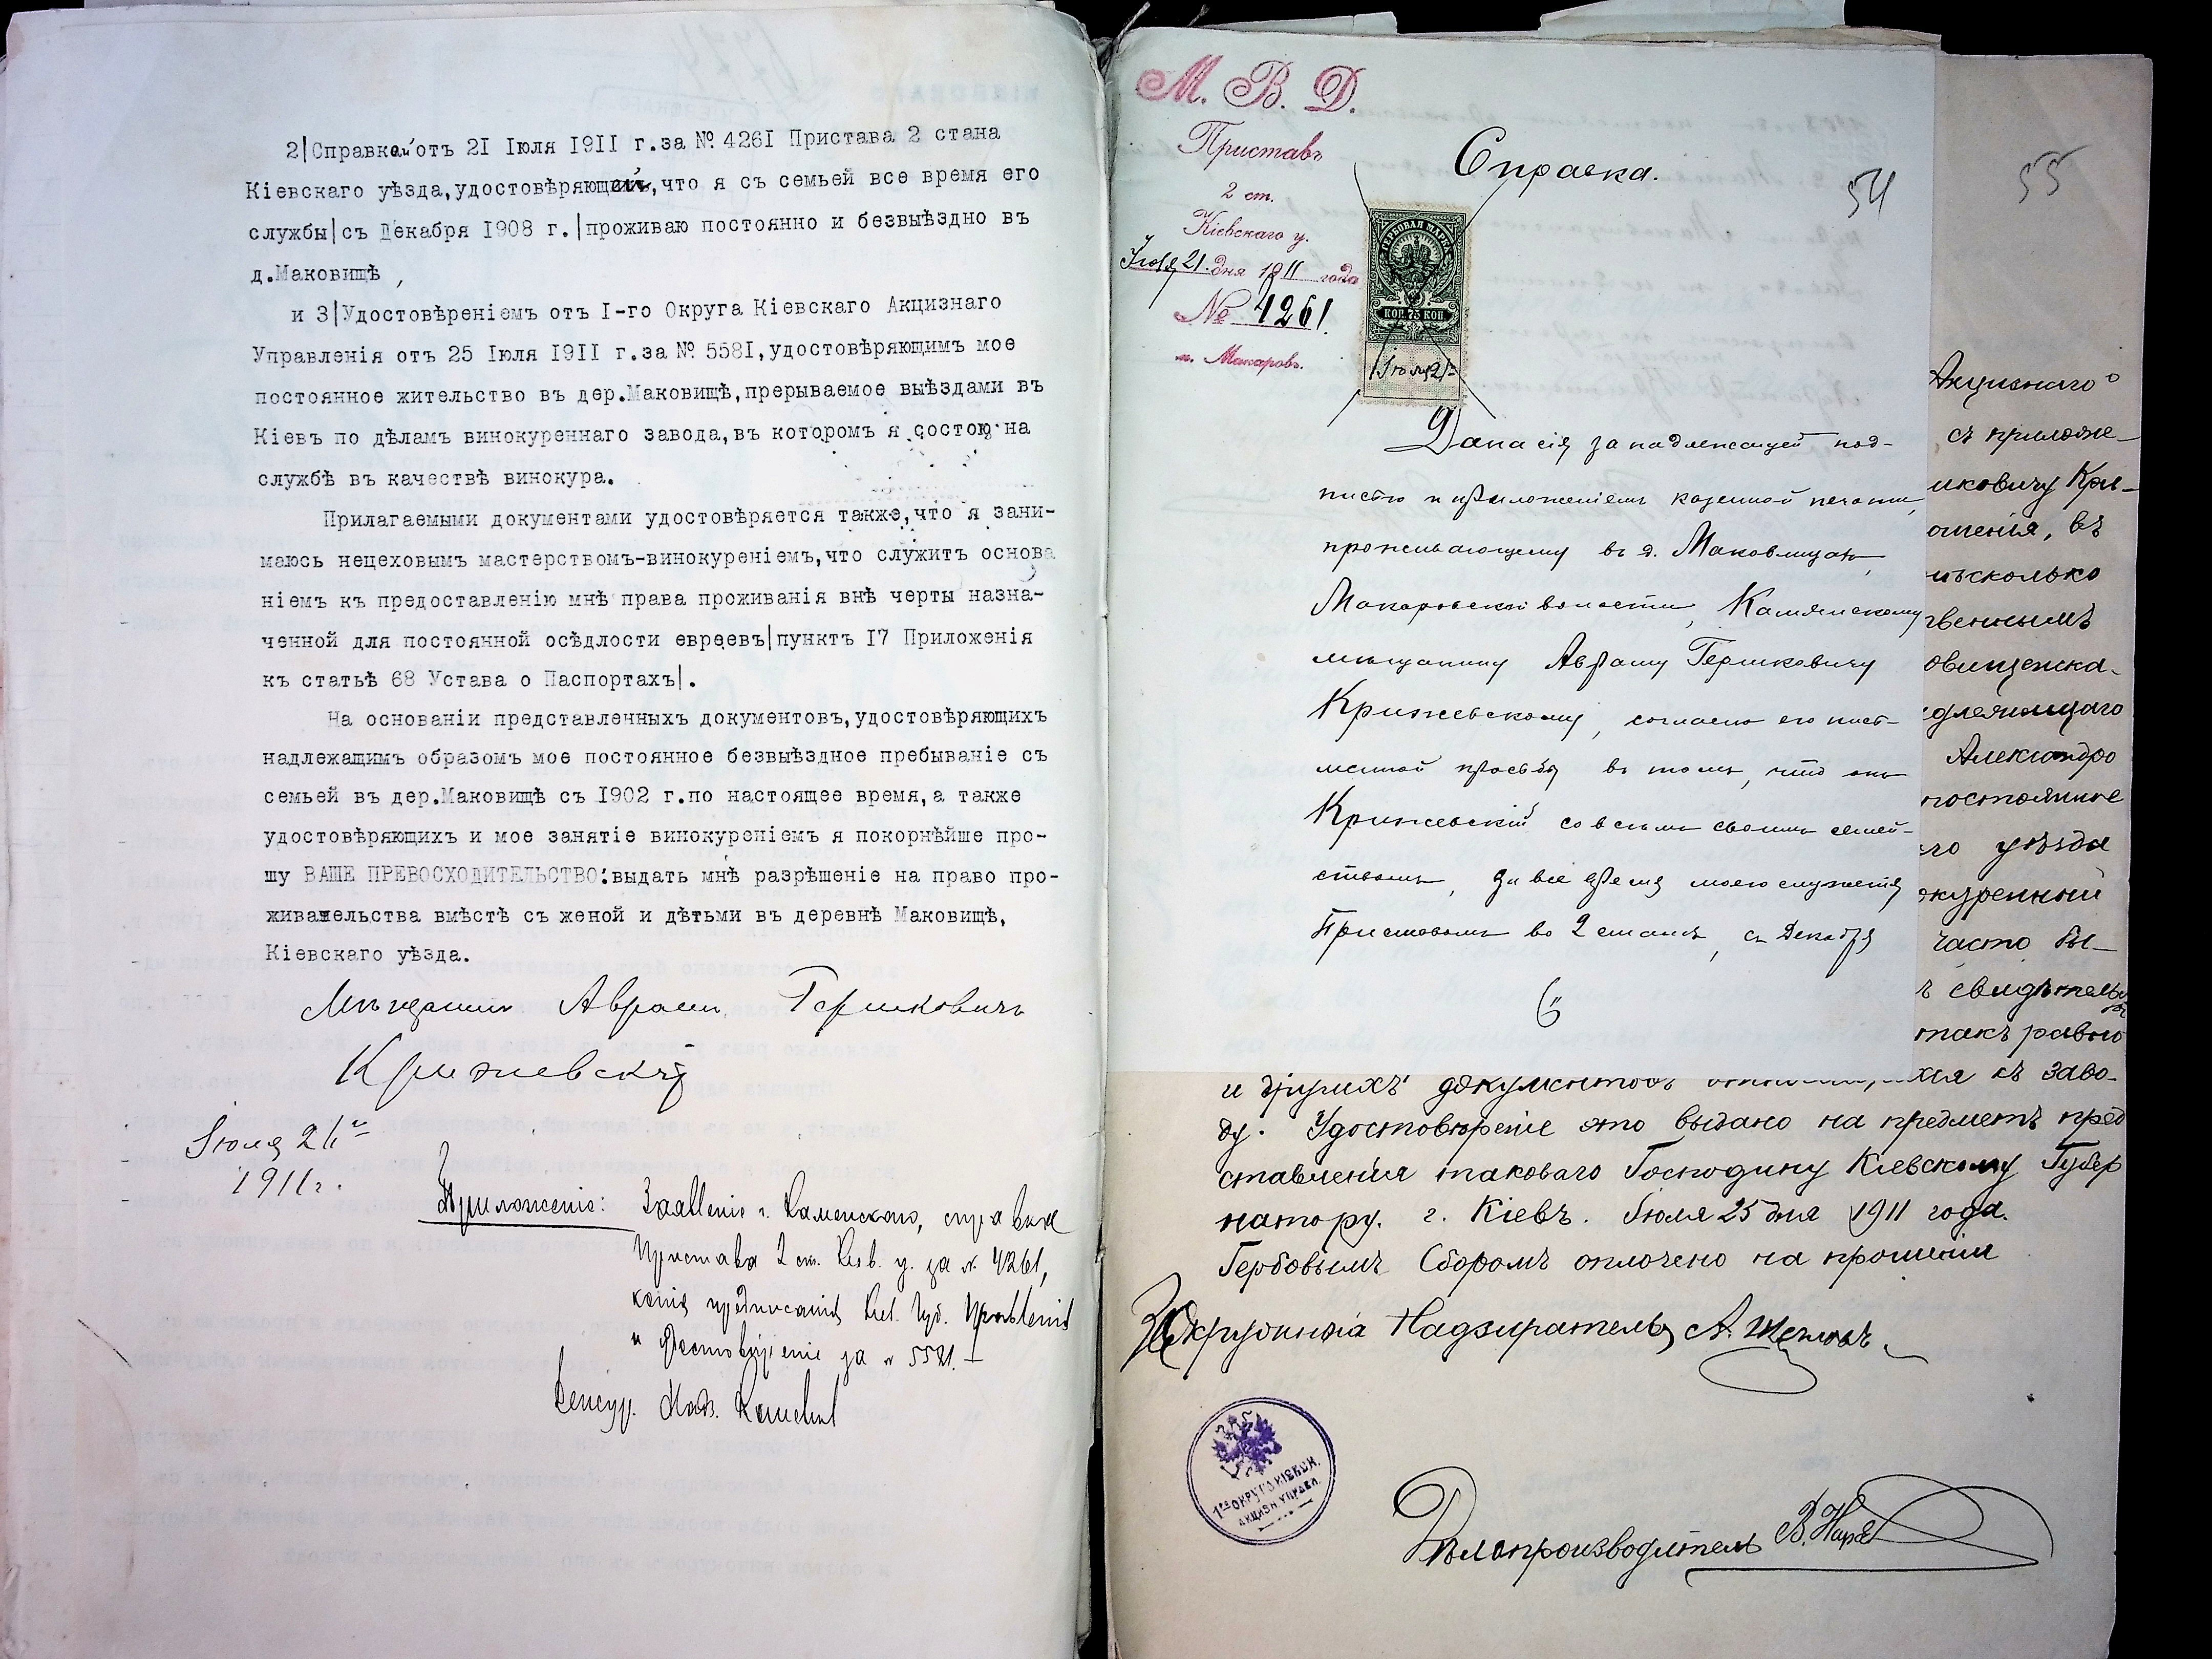 2|Справкой отъ 21 Іюля 1911 г.за № 4261 Пристава 2 стана
Кіевскаго уѣзда,удостовѣряющей,что я съ семьей все время его
службы|съ Декабря 1908 г.|проживаю постоянно и безвыѣздно въ
д.Маковищѣ ,
и 3|Удостовѣреніемъ отъ I-го Округа Кіевскаго Акцизнаго
Управленія отъ 25 Іюля 1911 г.за № 5581,удостовѣряющимъ мое
постоянное жительство въ дер.Маковищѣ,прерываемое выѣздами въ
Кіевъ по дѣламъ винокуреннаго завода,въ которомъ я состою на
службѣ въ качествѣ винокура.
Прилагаемыми документами удостовѣряется также,что я зани-
маюсь нецеховымъ мастерствомъ-винокуреніемъ,что служитъ основа
ніемъ къ предоставленію мнѣ права проживанія внѣ черты назна-
ченной для постоянной осѣдлости евреевъ|пунктъ 17 Приложенія
къ статьѣ 68 Устава о Паспортахъ|.
На основаніи представленныхъ документовъ,удостовѣряющихъ
надлежащимъ образомъ мое постоянное безвыѣздное пребываніе съ
семьей въ дер.Маковищѣ съ 1902 г.по настоящее время,а также
удостовѣряющихъ и мое занятіе винокуреніемъ я покорнѣйше про-
шу ВАШЕ ПРЕВОСХОДИТЕЛЬСТВО:выдать мнѣ разрѣшеніе на право про-
живательства вмѣстѣ съ женой и дѣтьми въ деревнѣ Маковищѣ,
Кіевскаго уѣзда.
Мѣщанин Аврам Гершковичъ
Крижевскій
Іюля
1911 г.
Приложеніе: Заявленіе г. Каменского, справка
Пристава 2 ст. Кіев. у. за № 4261,
копія предписанія Кіев. Губ. Правленія
и удостовѣреніе за № 5581. —
М. В. Д.
Приставъ
2 ст.
Кіевскаго у.
Іюля 21 дня 1911 года
№ 4261.
м. Макаровъ.
Справка.
54
ГЕРБОВАЯ МАРКА
КОП. 75 КОП
Іюля 21
Дана сія за надлежащей под-
писью и приложеніемъ казенной печати,
проживающему въ д. Маковищахъ,
Макаровской волости, Каменскому
мѣщанину Авраму Гершковичу
Крижевскому, согласно его пись-
менной просьбы въ томъ, что онъ
Крижевскій со всѣмъ своимъ семей-
ствомъ, за все время моего служенія
Приставомъ во 2 станѣ, съ Декабря
55
Акцизнаго
съ приложе-
иковичу Кри-
ошенія, въ
нѣсколько
твеннымъ
длежащаго
Александро
постоянное
го уѣзда
окуренный
часто бы-
ъ свидѣтель
такъ равно
и другихъ документовъ къ заво-
ду. Удостовѣреніе это выдано на предметъ пред
ставленія таковаго Господину Кіевскому Губер
натору. г. Кіевъ. Іюля 25 дня 1911 года.
Гербовымъ Сборомъ оплочено на прошеніи
Надзирателя
1го ОКРУГА КІЕВСК.
АКЦИЗН. УПРАВЛ.
Дѣлопроизводитель